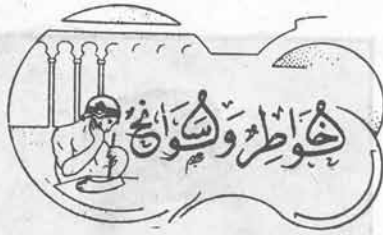 خَوَاطِرٌ وَسَوَانِحُ